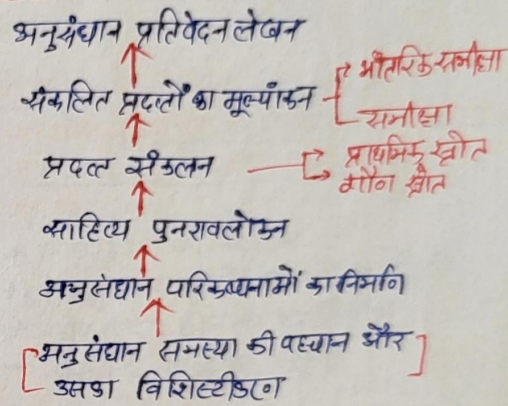 अनुसंधान प्रतिवेदन लेखन
संकलित प्रदत्तों का मूल्यांकन
आंतरिक समीक्षा
समीक्षा
प्रदत्त संकलन
प्राथमिक स्त्रोत
गौण स्त्रोत
साहित्य पुनरावलोकन
अनुसंधान परिकल्पनाओं का निर्माण
[अनुसंधान समस्या की पहचान और
उसका विशिष्टीकरण]